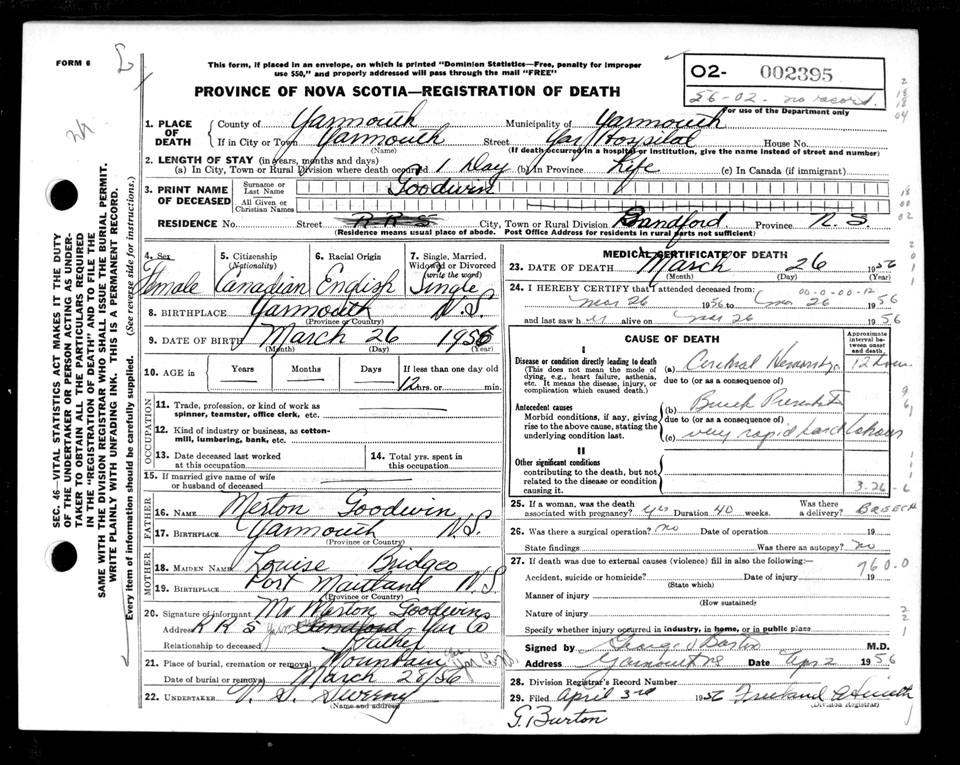 FORM 6
This form, if placed in an envelope, on which is printed "Dominion Statistics—Free, penalty for improper
use $50," and properly addressed will pass through the mail "FREE"
PROVINCE OF NOVA SCOTIA—REGISTRATION OF DEATH
02- 002395
56-02- no record.
For use of the Department only
SEC. 46—VITAL STATISTICS ACT MAKES IT THE DUTY
OF THE UNDERTAKER OR PERSON ACTING AS UNDER-
TAKER TO OBTAIN ALL THE PARTICULARS REQUIRED
IN THE "REGISTRATION OF DEATH" AND TO FILE THE
SAME WITH THE DIVISION REGISTRAR WHO SHALL ISSUE THE BURIAL PERMIT.
WRITE PLAINLY WITH UNFADING INK. THIS IS A PERMANENT RECORD.
Every item of information should be carefully supplied. (See reverse side for instructions.)
1. PLACE OF DEATH
County of Yarmouth Municipality of Yarmouth
If in City or Town Yarmouth Street Yar Hospital House No.
(Name) (If death occurred in a hospital or institution, give the name instead of street and number)
2. LENGTH OF STAY (in years, months and days)
(a) In City, Town or Rural Division where death occurred 1 Day (b) In Province Life (c) In Canada (if immigrant)
3. PRINT NAME OF DECEASED
Surname or Last Name Goodwin
All Given or Christian Names
RESIDENCE No. Street R R 5 City, Town or Rural Division Sandford Province N.S.
(Residence means usual place of abode. Post Office Address for residents in rural parts not sufficient)
4. Sex Female
5. Citizenship (Nationality) Canadian
6. Racial Origin English
7. Single, Married, Widowed or Divorced (write the word) Single
8. BIRTHPLACE Yarmouth N.S.
(Province or Country)
9. DATE OF BIRTH March 26 1956
(Month) (Day) (Year)
10. AGE IN Years Months Days If less than one day old
12 hrs. or min.
OCCUPATION
11. Trade, profession, or kind of work as
spinner, teamster, office clerk, etc.
12. Kind of industry or business, as cotton-
mill, lumbering, bank, etc.
13. Date deceased last worked at this occupation
14. Total yrs. spent in this occupation
15. If married give name of wife
or husband of deceased
FATHER
16. Name Merton Goodwin
17. Birthplace Yarmouth N.S.
(Province or Country)
MOTHER
18. Maiden Name Louise Bridgeo
19. Birthplace Port Maitland N.S.
(Province or Country)
20. Signature of informant Mr. Merton Goodwin
Address R R 5 Sandford Yar Co
Relationship to deceased Father
21. Place of burial, cremation or removal Mountain
Date of burial or removal March 28/56
22. UNDERTAKER V. S. Sweeny
(Name and address)
MEDICAL CERTIFICATE OF DEATH
23. DATE OF DEATH March 26 1956
(Month) (Day) (Year)
24. I HEREBY CERTIFY that I attended deceased from 00-0-00-12
Mar 26 1956 to Mar 26 1956
and last saw h er alive on Mar 26 1956
CAUSE OF DEATH
Approximate interval between onset and death.
I
Disease or condition directly leading to death
(This does not mean the mode of
dying, e.g., heart failure, asthenia,
etc. It means the disease, injury, or
complication which caused death.)
(a) Cerebral Hemorrhage 12 hours
due to (or as a consequence of)
Antecedent causes
Morbid conditions, if any, giving
rise to the above cause, stating the
underlying condition last.
(b) Breech Presentation
due to (or as a consequence of)
(c) very rapid hard labour
II
Other significant conditions
contributing to the death, but not
related to the disease or condition
causing it.
3-26-6
25. If a woman, was the death associated with pregnancy? yes Duration 40 weeks. Was there a delivery? Breech
26. Was there a surgical operation? no Date of operation 19
State findings Was there an autopsy? no
27. If death was due to external causes (violence) fill in also the following: 760.0
Accident, suicide or homicide? Date of injury 19
(State which)
Manner of injury
(How sustained)
Nature of injury
Specify whether injury occurred in industry, in home, or in public place
Signed by George Burton M.D.
Address Yarmouth NS Date Apr 2 1956
28. Division Registrar's Record Number
29. Filed April 3rd 1956
(Division Registrar)
G. Burton